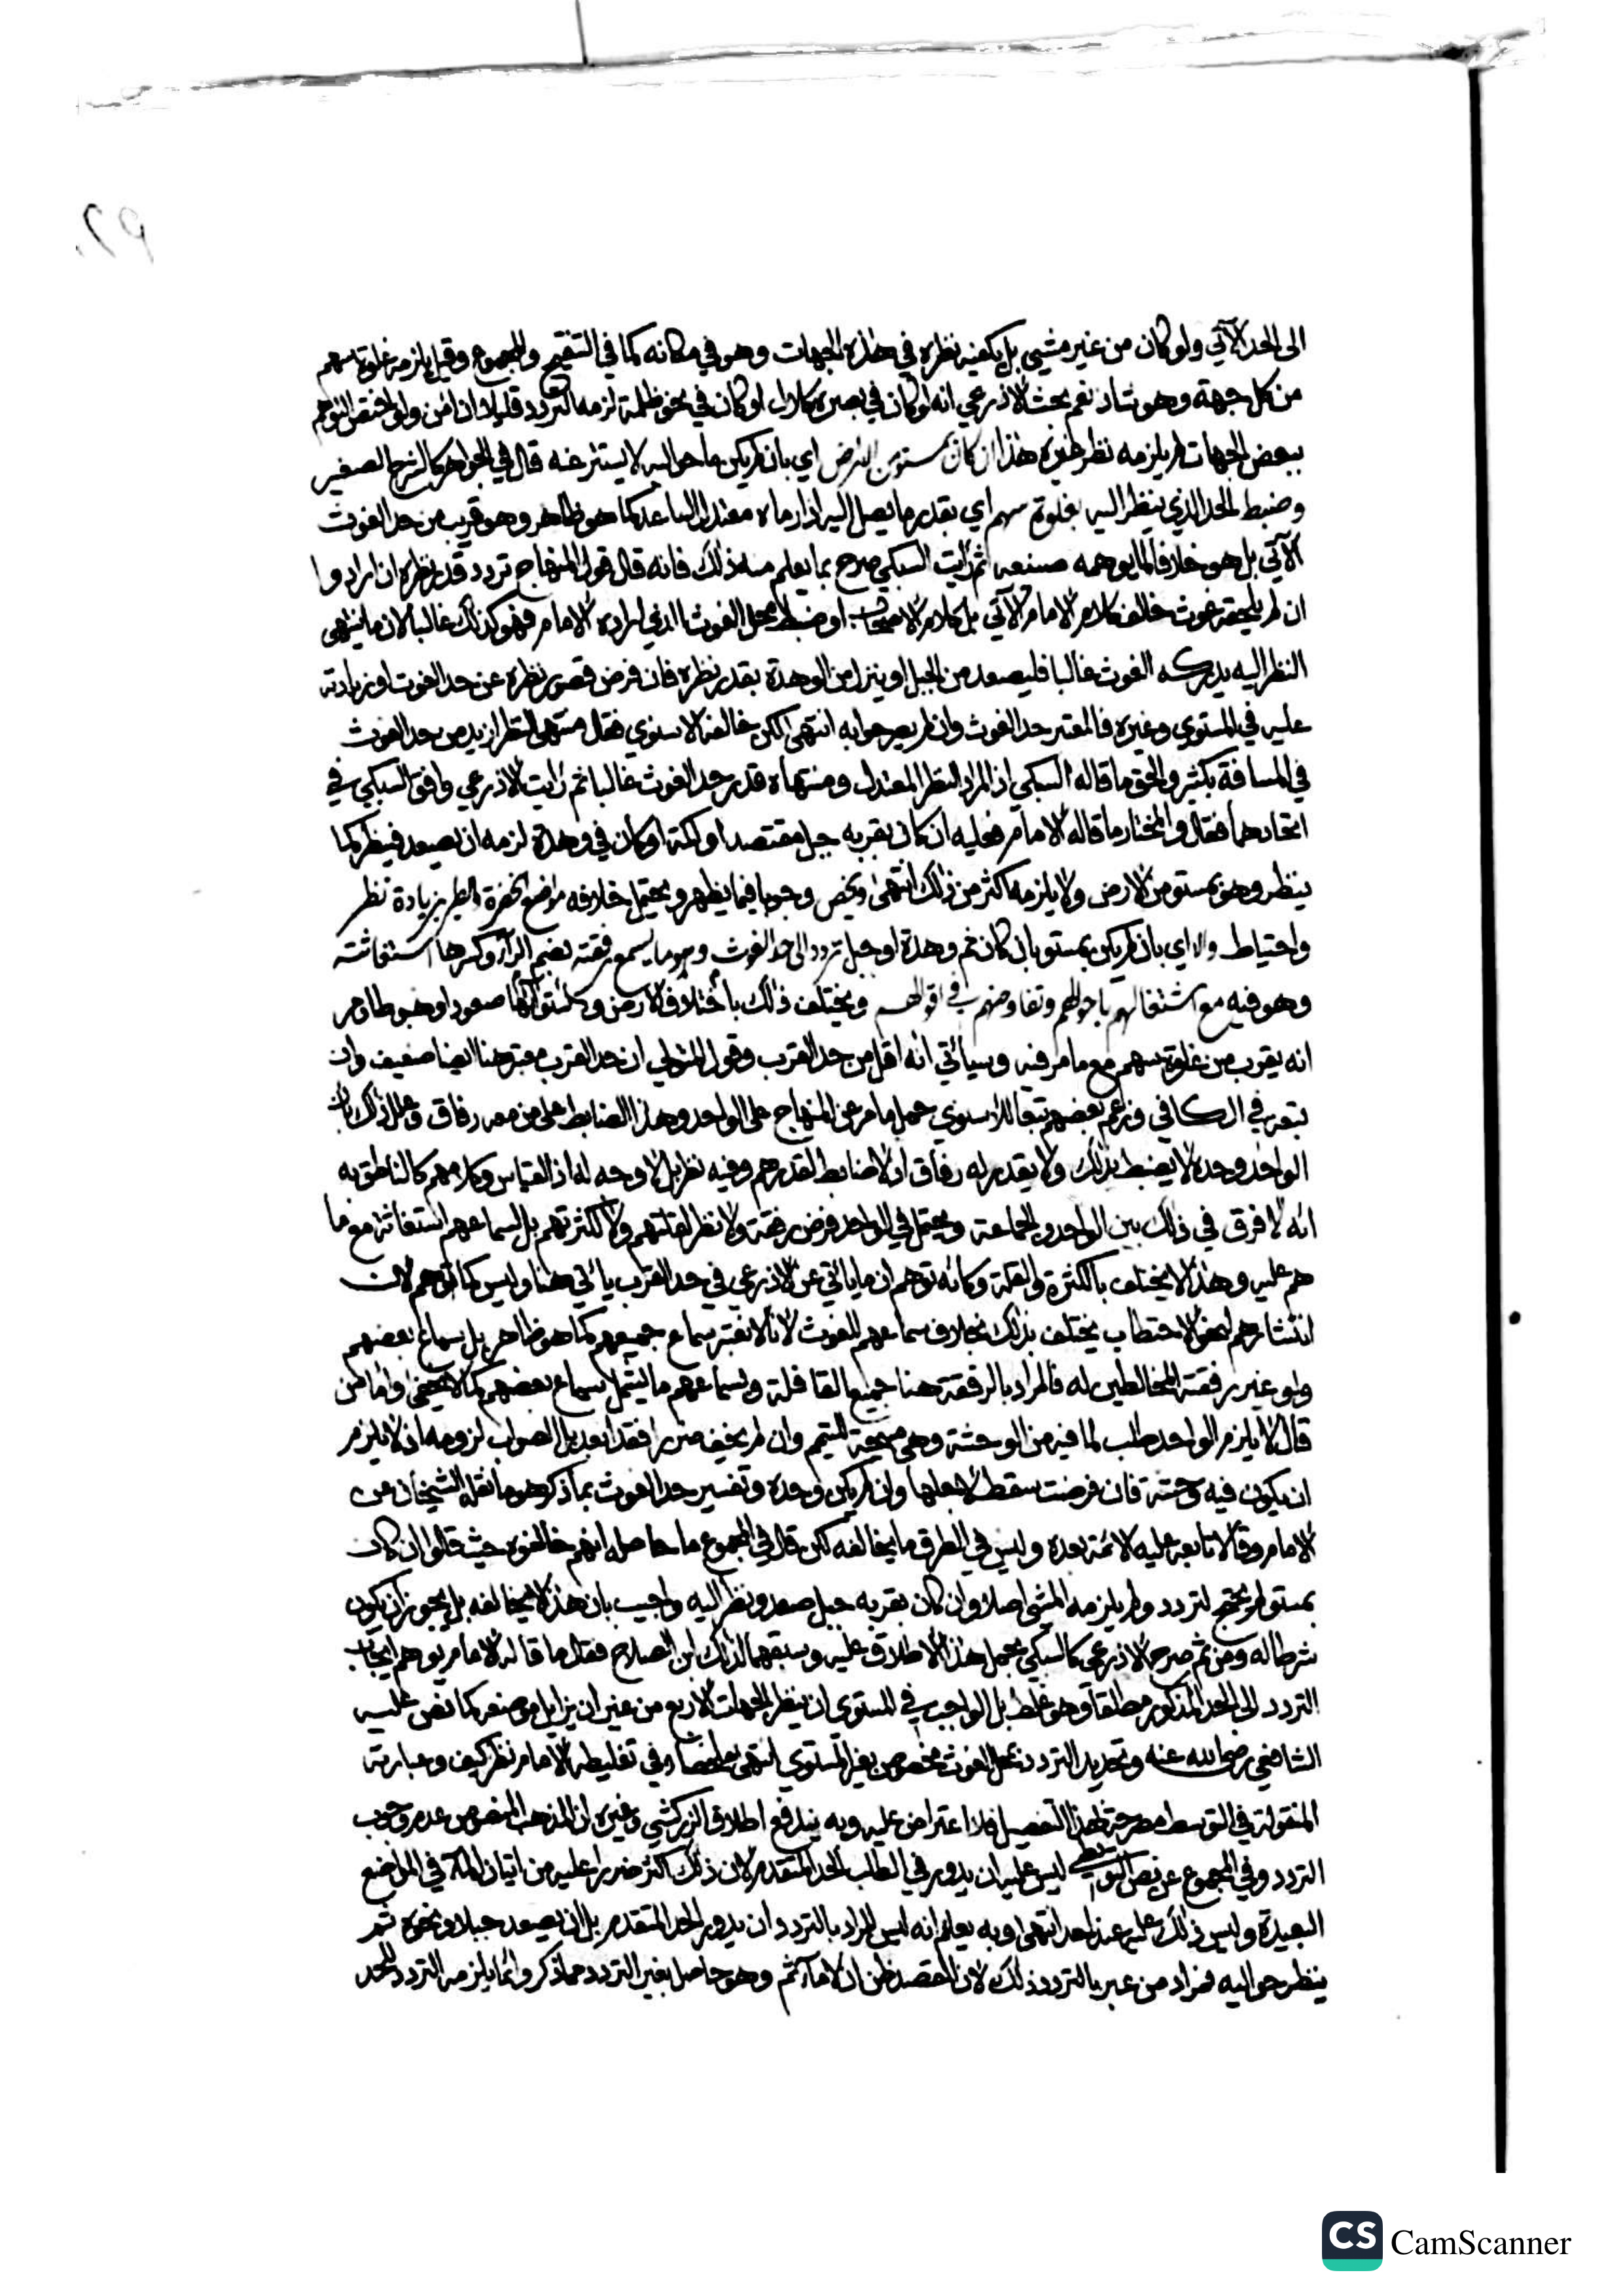 الى الحد الآتي ولو كان من غير مشي بل يكفيه نظره في هذه الجهات وهو في مكانه كما في التنقيح والمجموع وقيل يلزمه غلوة سهم
من كل جهة وهو شاذ نعم بحث الاذرعي انه لو كان في بصره كلال او كان في نحو ظلمة لزمه التردد قليلا ان امن ولو اختص التوهم
ببعض الجهات لم يلزمه نظر غيره هذا ان كان بمستو من الارض اي بان لم يكن ما حواليه لا يستتر عنه قال في الجواهر كالشرح الصغير
وضبط الحد الذي ينظر اليه بغلوة سهم اي بقدر ما يصل اليه اذا رماه معتدل الساعد كما هو ظاهر وهو قريب من حد الغوث
الآتي بل هو خلافا لما يوهمه صنيعه ثم رأيت السبكي صرح بما يعلم منه ذلك فانه قال قول المنهاج تردد قدر نظره ان ارادوا
ان لم يلحقه غوث خالف كلام الامام الآتي بل كلام الاصحاب او ضبط محل الغوث الذي اراده الامام فهو كذلك غالبا لان ما ينتهي
النظر اليه يدركه الغوث غالبا فليصعد من الجبل او ينزل من الوهدة بقدر نظره فان فرض قصور نظره عن حد الغوث او زيادته
عليه في المستوي وغيره فالمعتبر حد الغوث وان لم يصرحوا به انتهى لكن خالفه الاسنوي فقال منتهى النظر ازيد من حد الغوث
في المسافة بكثير والحق ما قاله السبكي اذ المراد النظر المعتدل ومنتهاه قدر حد الغوث غالبا ثم رايت الاذرعي وافق السبكي في
اتحادهما فقال والمختار ما قاله الامام فعليه ان كان بقربه جبل مقتصد او اكمة او كان في وهدة لزمه ان يصعد فينظر كما
ينظر وهو بمستو من الارض ولا يلزمه اكثر من ذلك انتهى ويخص وجوبا فيما يظهر ويحتمل خلافه مواضع الخضرة والطير بزيادة نظر
واحتياط والا اي بان لم يكن بمستو بان كان ثم وهدة او جبل تردد الى حد الغوث وهو ما يسمع رفقته بضم الراء وكسرها استغاثته
وهو فيه مع اشتغالهم باحوالهم وتفاوضهم في اقوالهم ويختلف ذلك باختلاف الارض صعودا وهبوطا ومر
انه يقرب من غلوة سهم مع ما مر فيه وسيأتي انه اقل من حد القرب وقول المتولي ان حد القرب معتبر هنا ايضا ضعيف وان
تبعه في الكافي وزعم بعضهم تبعا للاسنوي حمل ما مر عن المنهاج على الواحد وهذا الضابط على من معه رفاق وعلل ذلك بان
الواحد وحده لا يضبط بذلك ولا يقدر له رفاق اذ لا ضابط لقدرهم وفيه نظر بل لا وجه له اذ القياس وكلامهم كالناطق به
انه لا فرق في ذلك بين الواحد والجماعة ويحتمل في الواحد فرض رفقة ولا نظر لقلتهم ولا لكثرتهم بل لسماعهم استغاثته مع ما
هم عليه وهذا لا يختلف بالكثرة والقلة وكانه توهم ان ما ياتي عن الاذرعي في حد القرب ياتي هنا وليس كما توهم لان
انتشارهم لنحو الاحتطاب يختلف بذلك بخلاف سماعهم للغوث لانا لا نعتبر سماع جميعهم كما هو ظاهر بل سماع بعضهم
ولو غير رفقته المخالطين له فالمراد بالرفقة هنا جميع القافلة وبسماعهم ما يشمل سماع بعضهم كما لا يخفى واما من
قال لا يلزم الواحد طلب لما فيه من الوحشة وهي مبيحة للتيمم وان لم يخف ضررا فقد ابعد بل الصواب لزومه اذ لا يلزم
ان يكون فيه وحشة فان فرضت سقط لاجلها وان لم يكن وحده وتفسير حد الغوث بما ذكر هو ما نقله الشيخان عن
الامام وقالا تابعه عليه الائمة بعده وليس في الطرق ما يخالفه لكن قال في المجموع ما حاصله انهم خالفوه حيث قالوا ان كان
بمستو لم يحتج لتردد ولم يلزمه المشي اصلا وان كان بقربه جبل صعد ونظر اليه واجيب بان هذا لا يخالفه بل يجوز ان يكون
شرطا له ومن ثم صرح الاذرعي كالسبكي بحمل هذا الاطلاق عليه وسبقهما لذلك ابن الصلاح فقال ما قاله الامام يوهم ايجاب
التردد الى الحد المذكور مطلقا وهو غلط بل الواجب في المستوى ان ينظر الجهات الاربع من غير ان يزايل موضعه كما نص عليه
الشافعي رضي الله عنه وتحديد التردد بمحل الغوث مخصوص بغير المستوي انتهى ملخصا وفي تغليطه الامام نظر كيف وعبارته
المنقولة في التوسط مصرحة بهذا التفصيل فلا اعتراض عليه وبه يندفع اطلاق الزركشي وغيره ان المذهب المنصوص عدم وجوب
التردد وفي المجموع عن نص البويطي ليس عليه ان يدور في الطلب الحد المتقدم لان ذلك اكثر ضررا عليه من اتيان الماء في المواضع
البعيدة وليس ذلك عليه عند احد انتهى وبه يعلم انه ليس المراد بالتردد ان يدور الحد المتقدم بل ان يصعد جبلا ونحوه ثم
ينظر حواليه فمراد من عبر بالتردد ذلك لان القصد ظن ان لا ماء ثم وهو حاصل بغير التردد مما ذكر وانما يلزمه التردد للحد
CS CamScanner